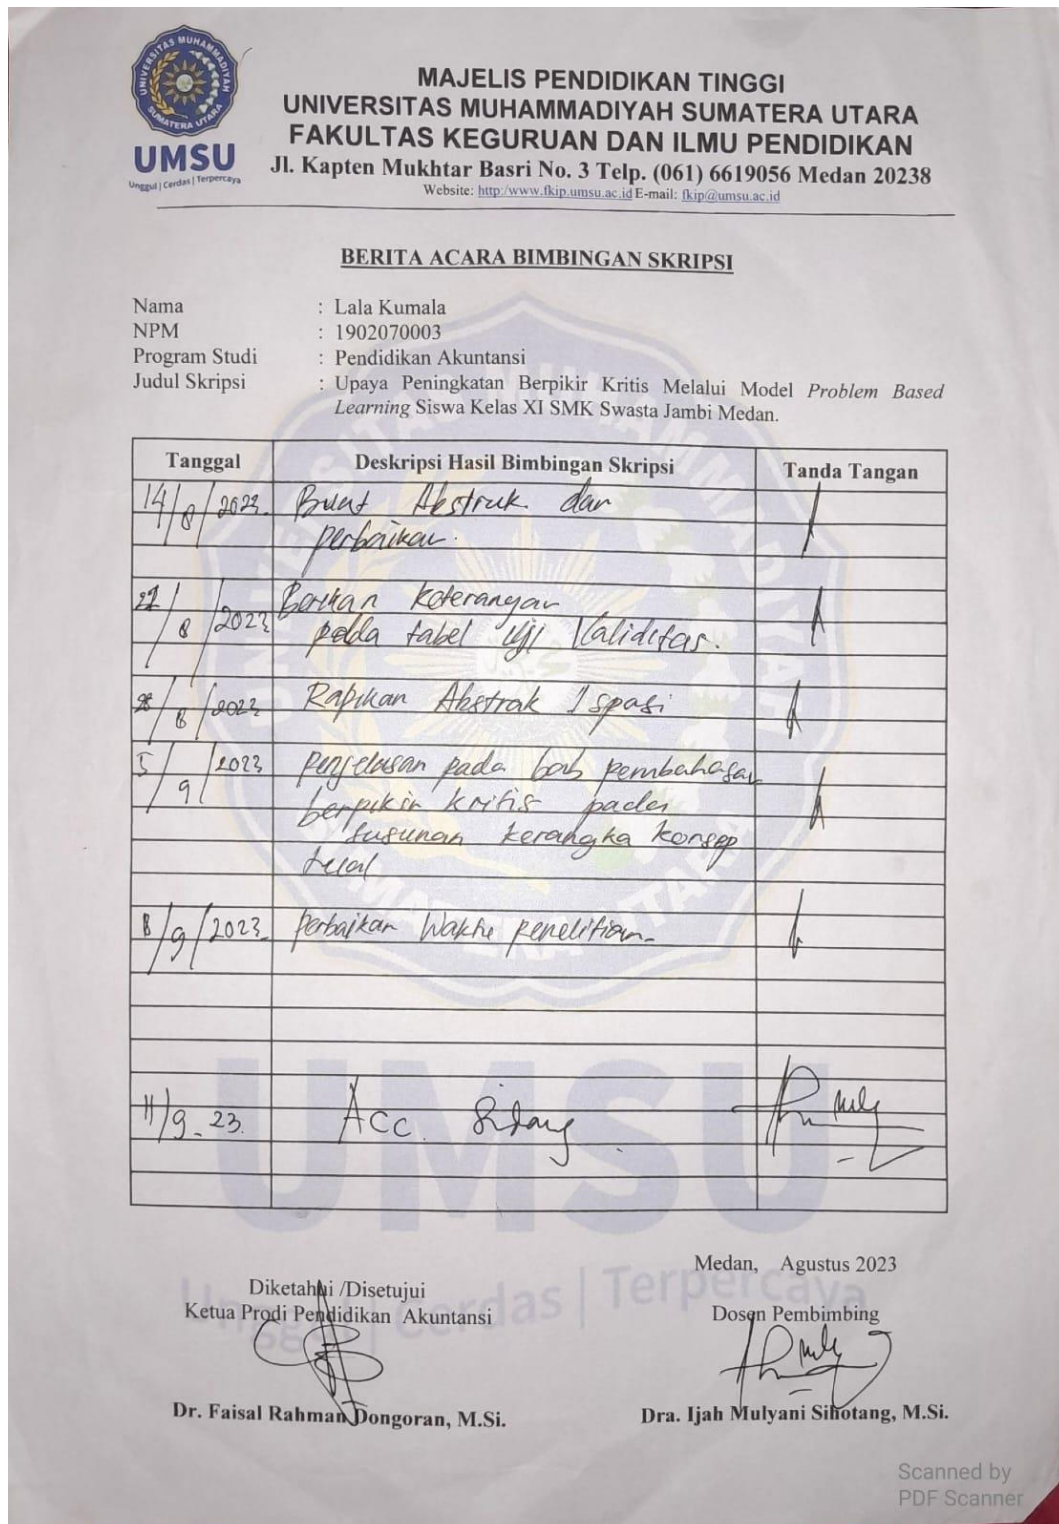 UNIVERSITAS MUHAMMADIYAH
SUMATERA UTARA
UMSU
Unggul | Cerdas | Terpercaya
MAJELIS PENDIDIKAN TINGGI
UNIVERSITAS MUHAMMADIYAH SUMATERA UTARA
FAKULTAS KEGURUAN DAN ILMU PENDIDIKAN
Jl. Kapten Mukhtar Basri No. 3 Telp. (061) 6619056 Medan 20238
Website: http:/www.fkip.umsu.ac.id E-mail: fkip@umsu.ac.id
BERITA ACARA BIMBINGAN SKRIPSI
Nama : Lala Kumala
NPM : 1902070003
Program Studi : Pendidikan Akuntansi
Judul Skripsi : Upaya Peningkatan Berpikir Kritis Melalui Model Problem Based
Learning Siswa Kelas XI SMK Swasta Jambi Medan.
Tanggal Deskripsi Hasil Bimbingan Skripsi Tanda Tangan
14/8/2023. Buat Abstrak dan
perbaikan.
/8/2023 Berikan keterangan
pada tabel uji Validitas.
/8/2023 Rapikan Abstrak 1 spasi
5/9/2023 penjelasan pada bab pembahasan
berpikir kritis pada
susunan kerangka konsep
tual
8/9/2023 perbaikan Waktu penelitian
11/9-23. Acc. Sidang
Medan, Agustus 2023
Diketahui /Disetujui
Ketua Prodi Pendidikan Akuntansi
Dosen Pembimbing
Dr. Faisal Rahman Dongoran, M.Si.
Dra. Ijah Mulyani Sihotang, M.Si.
UMSU
Unggul | Cerdas | Terpercaya
Scanned by
PDF Scanner